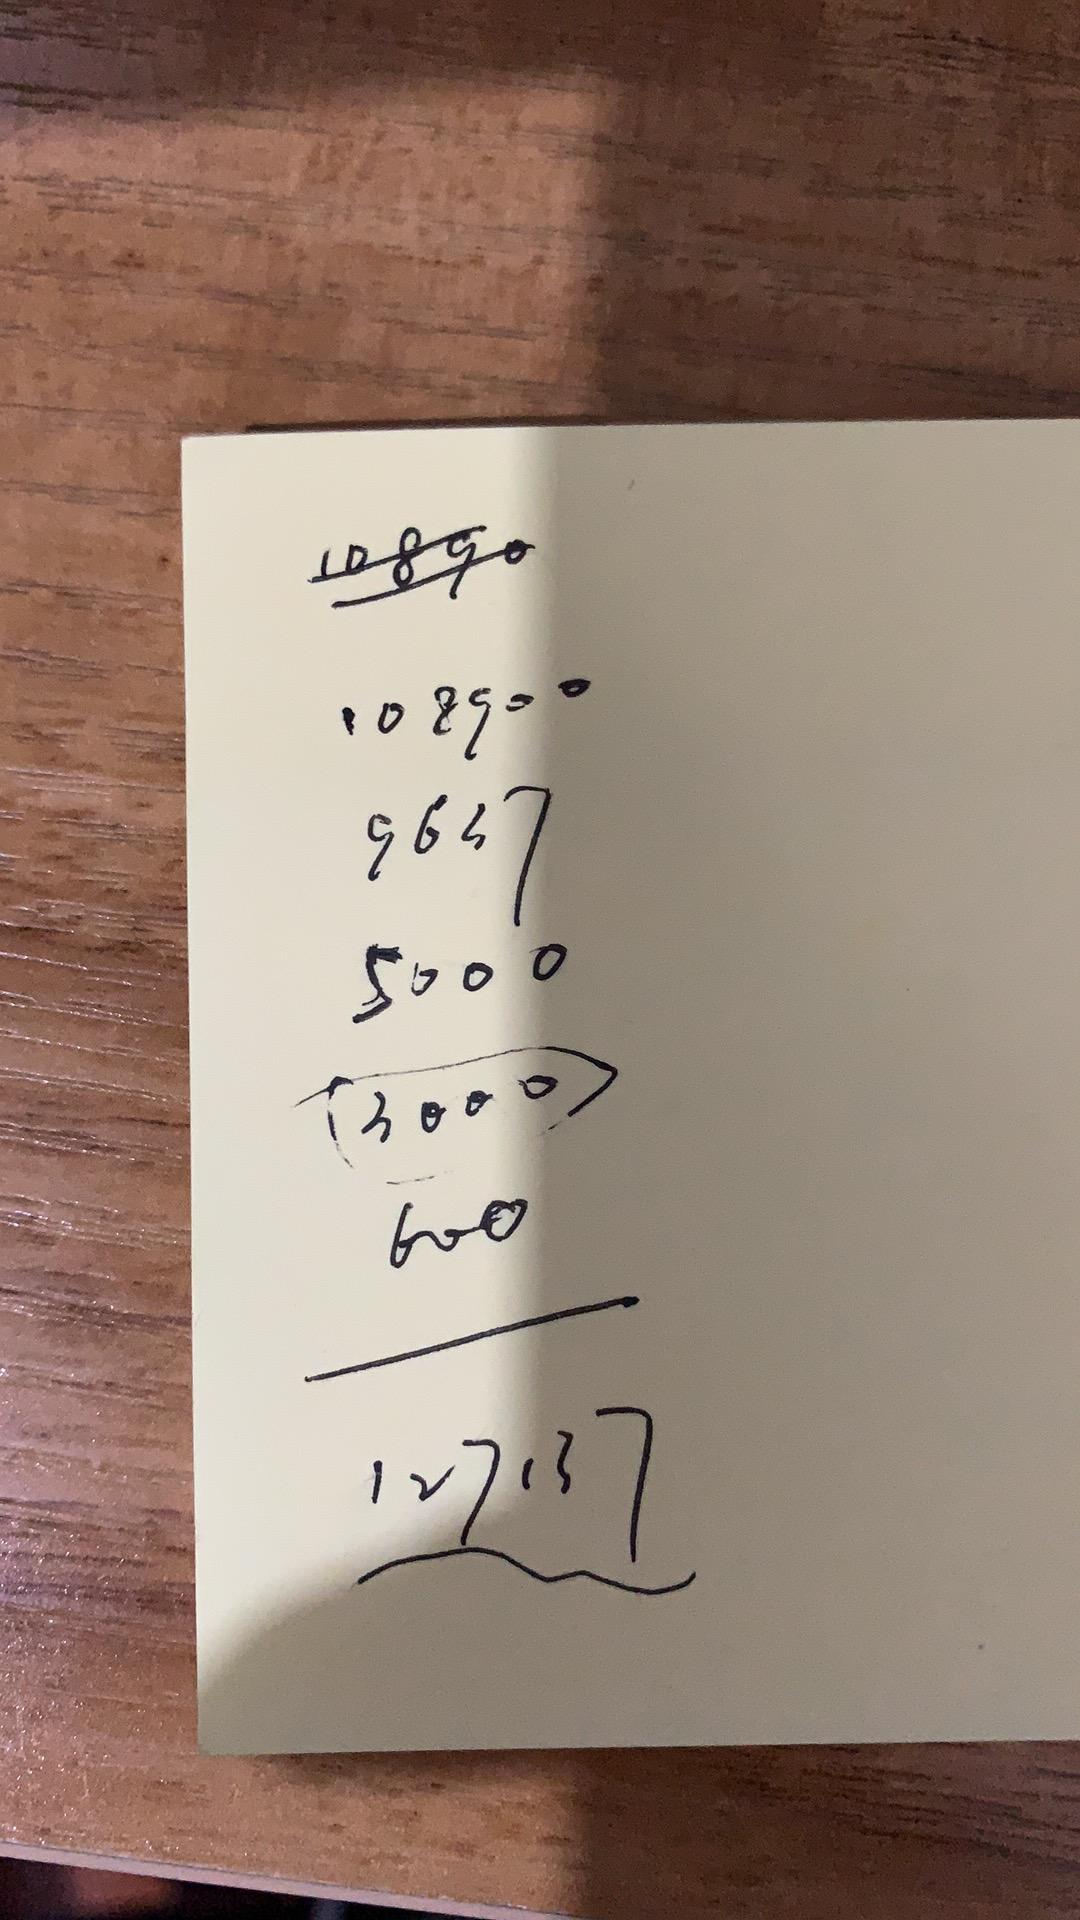 10890
108900
9637
5000
3000
600
127137